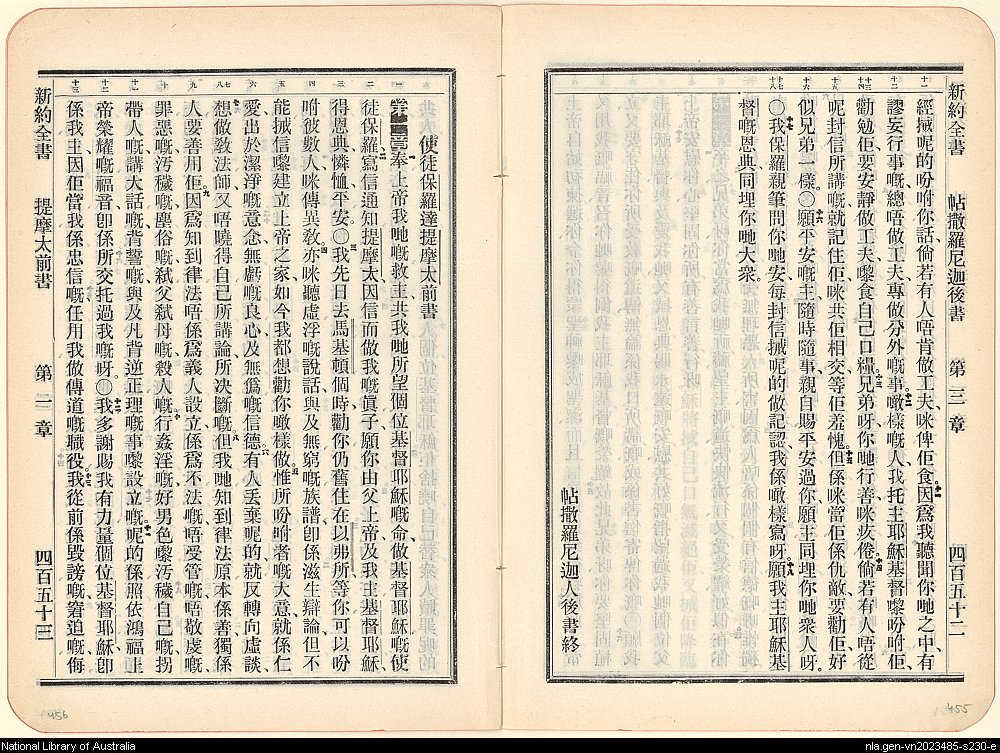 新約全書 帖撒羅尼迦後書 第三章 四百五十二
經㨢呢的吩咐你話倘若有人唔肯做工夫咪俾佢食因爲我聽聞你哋之中有
謬妄行事嘅總唔做工夫專做分外嘅事噉樣嘅人我托主耶穌基督嚟吩咐佢
勸勉佢要安靜做工夫嚟食自己口糧兄弟呀你哋行善咪疲倦倘若有人唔從
呢封信所講嘅就記住佢咪共佢相交等佢羞愧但係咪當佢係仇敵要勸佢好
似兄弟一樣〇願平安嘅主隨時隨事親自賜平安過你願主同埋你哋衆人呀
〇我保羅親筆問你哋安每封信㨢呢的做記認我係噉樣寫呀願我主耶穌基
督嘅恩典同埋你哋大衆
帖撒羅尼迦人後書終
使徒保羅達提摩太前書
奉上帝我哋嘅救主共我哋所望個位基督耶穌嘅命做基督耶穌嘅使
徒保羅寫信通知提摩太因信而做我嘅眞子願你由父上帝及我主基督耶穌
得恩典憐恤平安〇我先日去馬基頓個時勸你仍舊住在以弗所等你可以吩
咐彼數人咪傳異敎亦咪聽虛浮嘅說話與及無窮嘅族譜卽係滋生辯論但不
能㨢信嚟建立上帝之家如今我都想勸你噉樣做惟所吩咐者嘅大意就係仁
愛出於潔淨嘅意念無虧嘅良心及無僞嘅信德有人丢棄呢的就反轉向虛談
想做敎法師又唔曉得自己所講論所决斷嘅但我哋知到律法原本係善獨係
人要善用佢因爲知到律法唔係爲義人設立係爲不法嘅唔受管嘅唔敬虔嘅
罪惡嘅汚穢嘅塵俗嘅弑父弑母嘅殺人嘅行姦淫嘅好男色嚟汚穢自己嘅拐
帶人嘅講大話嘅背誓嘅與及凡背逆正理嘅事嚟設立嘅呢的係照依鴻福上
帝榮耀嘅福音卽係所交托過我嘅呀〇我多謝賜我有力量個位基督耶穌卽
係我主因佢當我係忠信嘅任用我做傳道嘅職役我從前係毀謗嘅窘迫嘅侮
新約全書 提摩太前書 第一章 四百五十三
456
455
National Library of Australia
nla.gen-vn2023485-s230-e